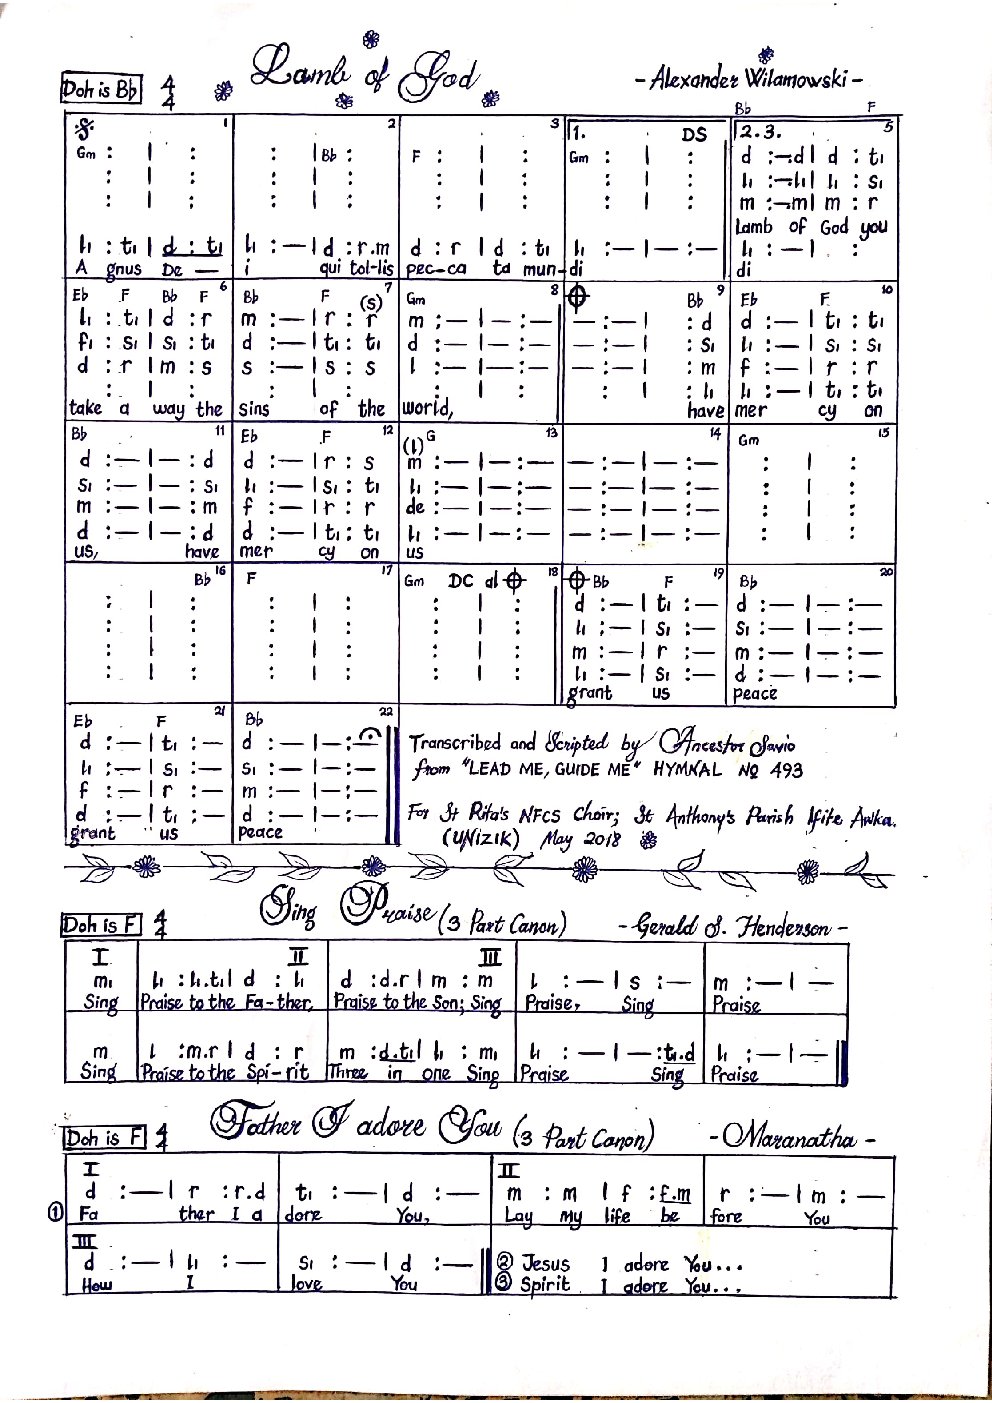 Lamb of God
Doh is B♭ 4/4 - Alexander Wilamowski -
B♭ F
1 2 3 1. DS 2.3. 5
Gm : | : : |B♭ : F : | : Gm : | : d :–.d| d : t₁
: | : : | : : | : : | : l₁ :–.l₁| l₁ : s₁
: | : : | : : | : : | : m :–.m| m : r
Lamb of God you
l₁ : t₁ | d : t₁ l₁ : — | d : r.m d : r | d : t₁ l₁ : — | — : — l₁ : — | :
A gnus De — i qui tol-lis pec-ca ta mun-di di
E♭ F B♭ F 6 B♭ F (s) 7 Gm 8 B♭ 9 E♭ F 10
l₁ : t₁ | d : r m : — | r : r m : — | — : — — : — | : d d : — | t₁ : t₁
f₁ : s₁ | s₁ : t₁ d : — | t₁ : t₁ d : — | — : — — : — | : s₁ l₁ : — | s₁ : s₁
d : r | m : s s : — | s : s l : — | — : — — : — | : m f : — | r : r
: | : : | : : | : : | : l₁ l₁ : — | t₁ : t₁
take a way the sins of the world, have mer cy on
B♭ 11 E♭ F 12 (l) G 13 14 Gm 15
d : — | — : d d : — | r : s m : — | — : — — : — | — : — : | :
s₁ : — | — : s₁ l₁ : — | s₁ : t₁ l₁ : — | — : — — : — | — : — : | :
m : — | — : m f : — | r : r de : — | — : — — : — | — : — : | :
d : — | — : d d : — | t₁ : t₁ l₁ : — | — : — — : — | — : — : | :
us, have mer cy on us
B♭ 16 F 17 Gm DC al 18 B♭ F 19 B♭ 20
: | : : | : : | : d : — | t₁ : — d : — | — : —
: | : : | : : | : l₁ : — | s₁ : — s₁ : — | — : —
: | : : | : : | : m : — | r : — m : — | — : —
: | : : | : : | : l₁ : — | s₁ : — d : — | — : —
grant us peace
E♭ F 21 B♭ 22
d : — | t₁ : — d : — | — : —
l₁ : — | s₁ : — s₁ : — | — : —
f : — | r : — m : — | — : —
d : — | t₁ : — d : — | — : —
grant us peace
Transcribed and Scripted by Ancestor Savio
from "LEAD ME, GUIDE ME" HYMNAL No 493
For St Rita's NFCS Choir; St Anthony's Parish Ifite Awka.
(UNIZIK) May 2018
Sing Praise (3 Part Canon)
Doh is F 4/4 - Gerald S. Henderson -
I II III
m₁ l₁ : l₁.t₁| d : l₁ d : d.r | m : m l : — | s : — m : — | —
Sing Praise to the Fa-ther, Praise to the Son; Sing Praise, Sing Praise
m l : m.r | d : r m : d.t₁| l₁ : m₁ l₁ : — | — : t₁.d l₁ : — | —
Sing Praise to the Spi-rit Three in one Sing Praise Sing Praise
Father I adore You (3 Part Canon)
Doh is F 4/4 - Maranatha -
I II
d : — | r : r.d t₁ : — | d : — m : m | f : f.m r : — | m : —
① Fa ther I a dore You, Lay my life be fore You
III
d : — | l₁ : — s₁ : — | d : —
How I love You
② Jesus I adore You...
③ Spirit I adore You...